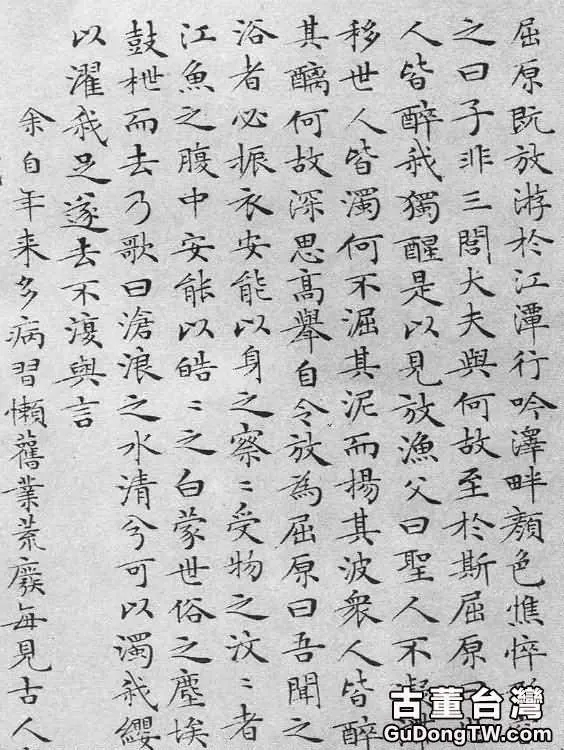 屈原既放游於江潭行吟澤畔顏色憔悴
之曰子非三閭大夫與何故至於斯屈原曰
人皆醉我獨醒是以見放漁父曰聖人不凝
移世人皆濁何不淈其泥而揚其波衆人皆醉
其醨何故深思高舉自令放為屈原曰吾聞之
浴者必振衣安能以身之察〻受物之汶〻者
江魚之腹中安能以皓〻之白蒙世俗之塵埃
鼓枻而去乃歌曰滄浪之水清兮可以濁我纓
以濯我足遂去不復與言
余自年来多病習懶舊業荒廢每見古人
古董台灣
GuDongTW.com